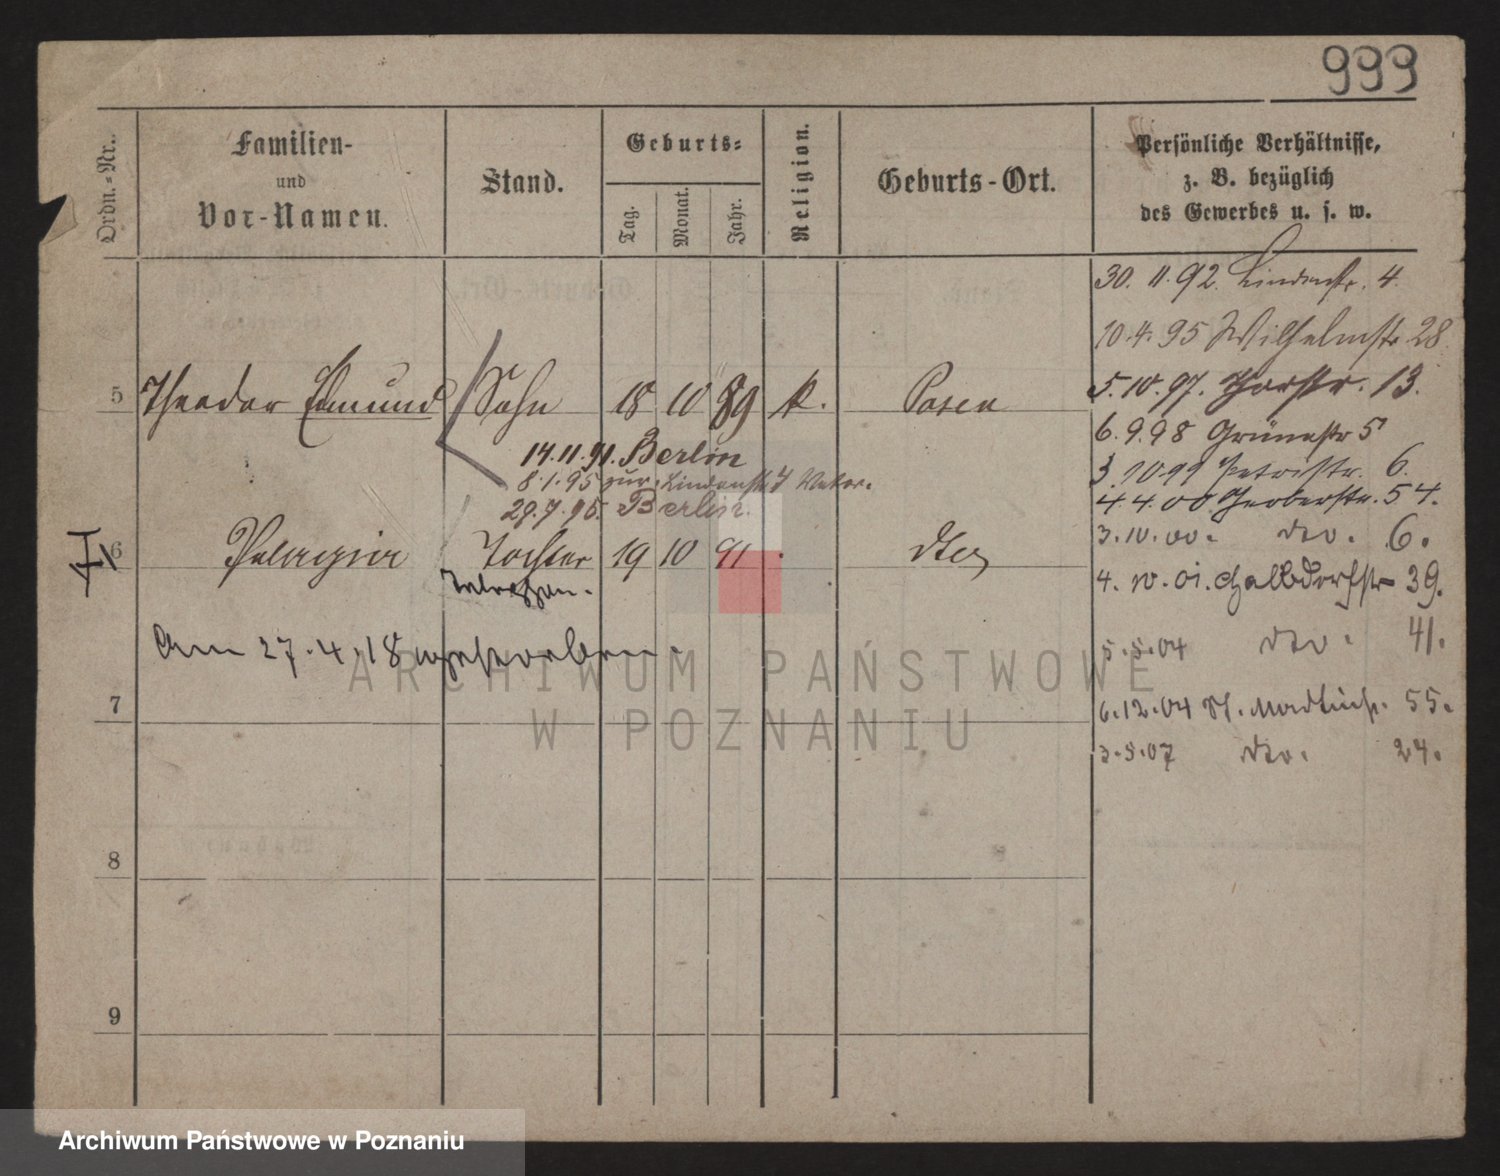 999
Ordn.-Nr.
Familien-
und
Vor-Namen.
Stand.
Geburts-
Tag.
Monat.
Jahr.
Religion.
Geburts-Ort.
Persönliche Verhältnisse,
z. B. bezüglich
des Gewerbes u. s. w.
30. 11. 92. Lindenstr. 4.
10. 4. 95 Wilhelmstr 28
5 Theodor Edmund Sohn 18 10 89 k. Posen
5. 10. 97. Thorstr. 13.
6. 9. 98 Grünestr 5
14. 11. 91. Berlin
8. 1. 95 zur. Lindenstr 4 Vater.
3. 10 99 Petristr. 6.
29. 7. 95. Berlin.
4. 4. 00. Gerberstr. 54.
6 Pelagia Tochter 19 10 91 dto
3. 10. 00. dto. 6.
4. 10. 01. Halbdorfstr 39.
Am 27. 4. 18 gestorben.
5. 5. 04 dto. 41.
7
6. 12. 04 55.
3. 5. 07 dto. 24.
8
9
ARCHIWUM PAŃSTWOWE
W POZNANIU
Archiwum Państwowe w Poznaniu